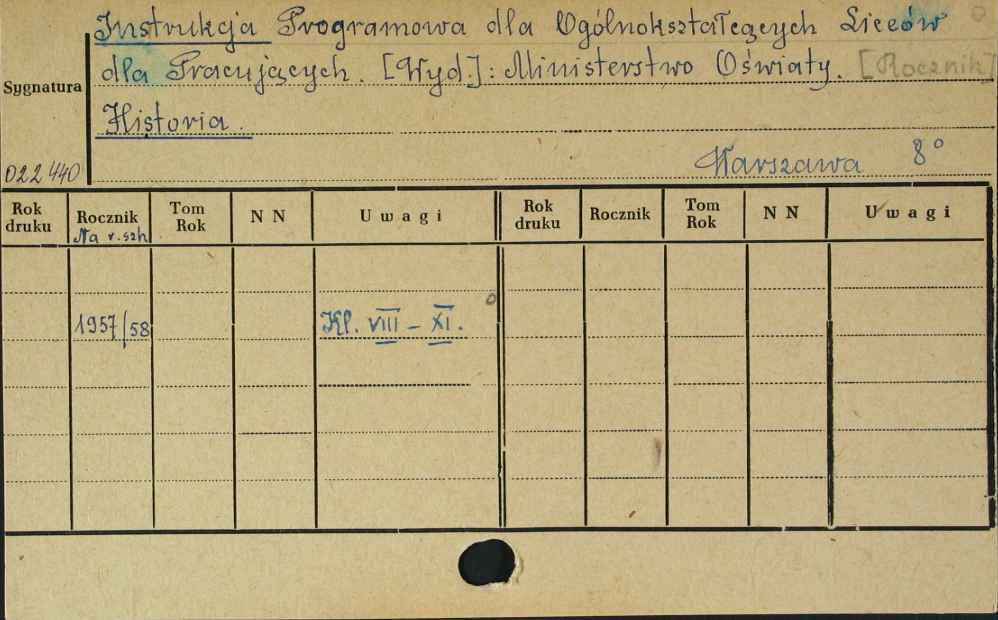 Instrukcja Programowa dla Ogólnokształcących Liceów
dla Pracujących. [Wyd.]: Ministerstwo Oświaty. [Rocznik]
Sygnatura
Historia.
022440
Warszawa 8°
Rok druku Rocznik Na r. szk Tom Rok N N Uwagi Rok druku Rocznik Tom Rok N N Uwagi
1957/58 Kl. VIII - XI.